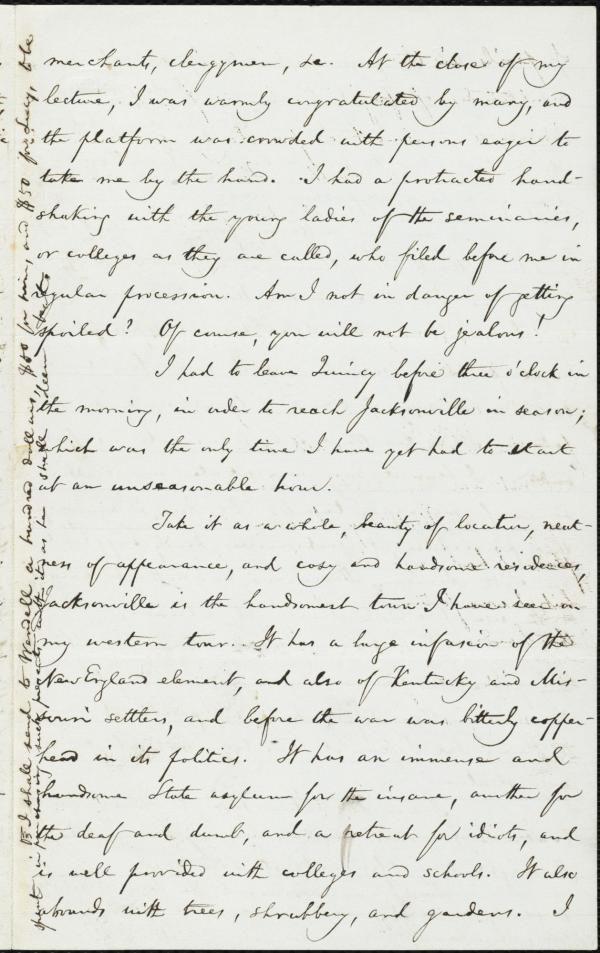 merchants, clergymen, &c. At the close of my
lecture, I was warmly congratulated by many, and
the platform was crowded with persons eager to
take me by the hand. I had a protracted hand-
shaking with the young ladies of the seminaries,
or colleges as they are called, who filed before me in
regular procession. Am I not in danger of getting
spoiled? Of course, you will not be jealous!
I had to leave Quincy before three o'clock in
the morning, in order to reach Jacksonville in season;
which was the only time I have yet had to start
at an unseasonable hour.
Take it as a whole, beauty of location, neat-
ness of appearance, and cosy and handsome residences,
Jacksonville is the handsomest town I have seen on
my western tour. It has a large infusion of the
New England element, and also of Kentucky and Mis-
souri settlers, and before the war was bitterly copper-
head in its politics. It has an immense and
handsome State asylum for the insane, another for
the deaf and dumb, and a retreat for idiots, and
is well provided with colleges and schools. It also
abounds with trees, shrubbery, and gardens. I
I shall send to Wendell a hundred dollars, $50 for him, and $50 for Lucy, to be
spent in purchasing such presents as he shall deem best